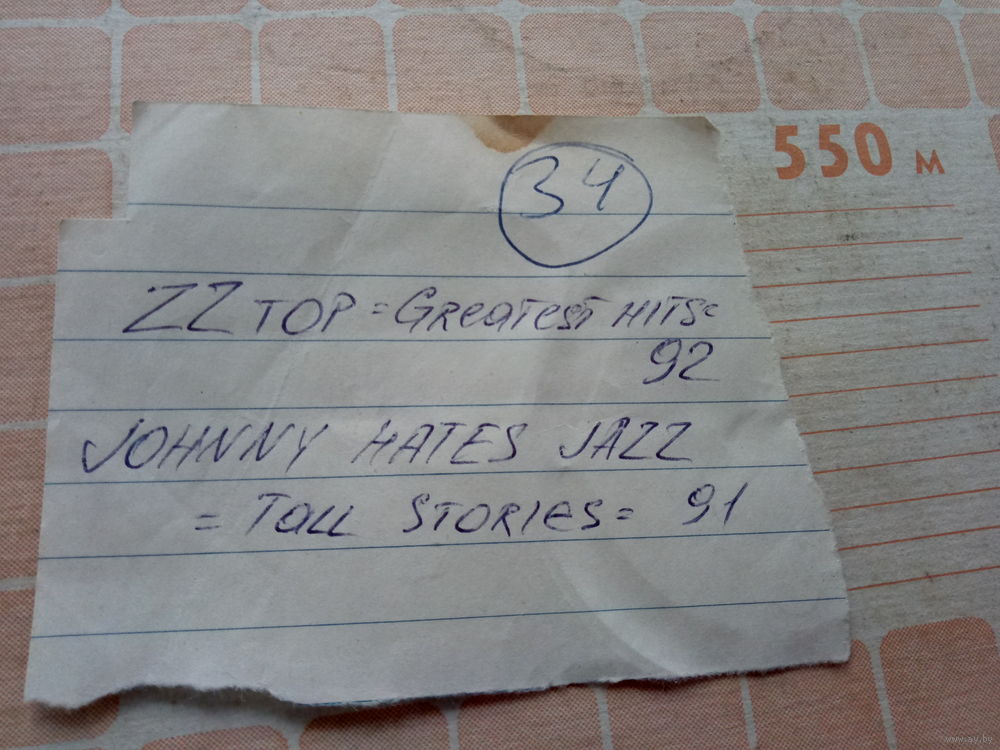 34
550 м
ZZ TOP = GReaTesT HITS=
92
JOHNNY HATES JAZZ
= Tall STORIes= 91
www.ay.by